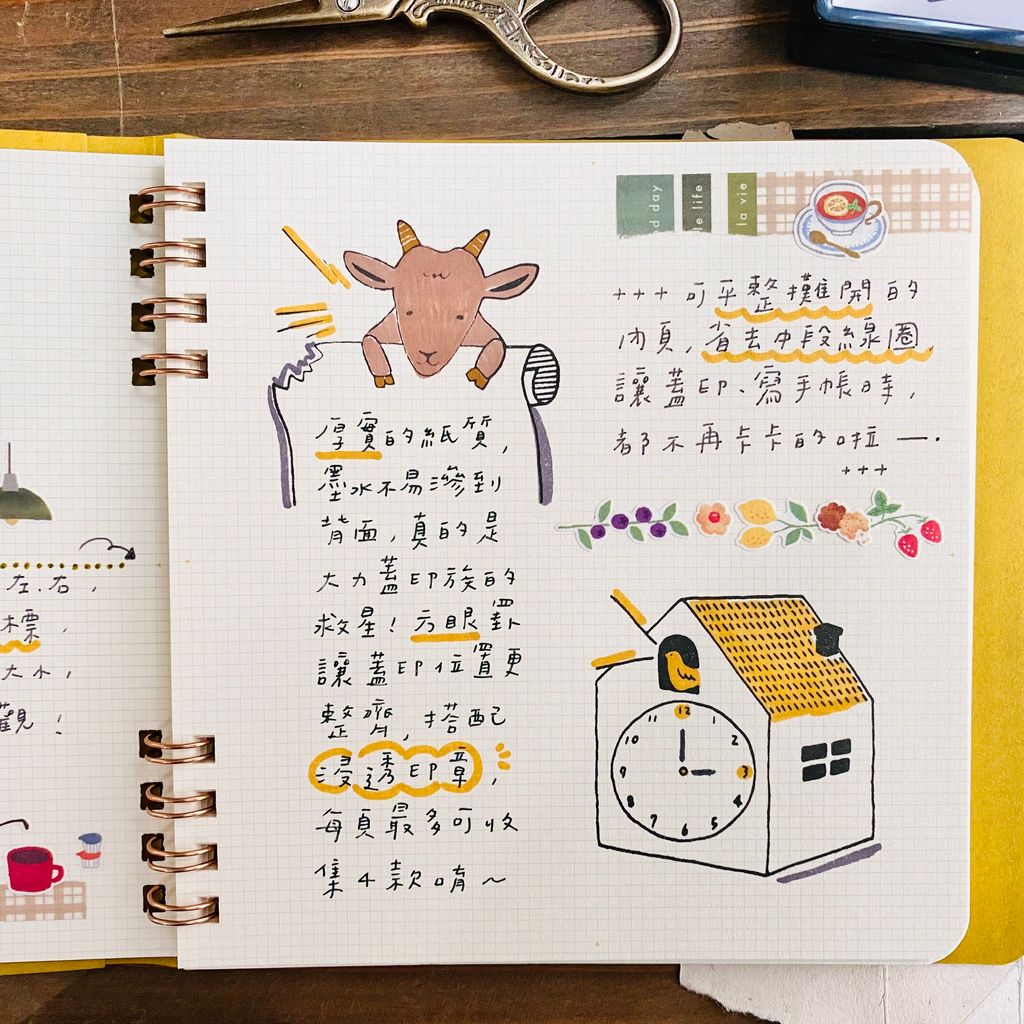 左、右，
標，
大小，
觀！
厚實的紙質，
墨水不易滲到
背面，真的是
大力蓋印族的
救星！方眼罫
讓蓋印位置更
整齊，搭配
浸透印章，
每頁最多可收
集4款唷～
la vie
le life
+++ 可平整攤開的
內頁，省去中段線圈，
讓蓋印、寫手帳時，
都不再卡卡的啦 —.
+++
12
1
2
3
4
5
6
7
8
9
10
11